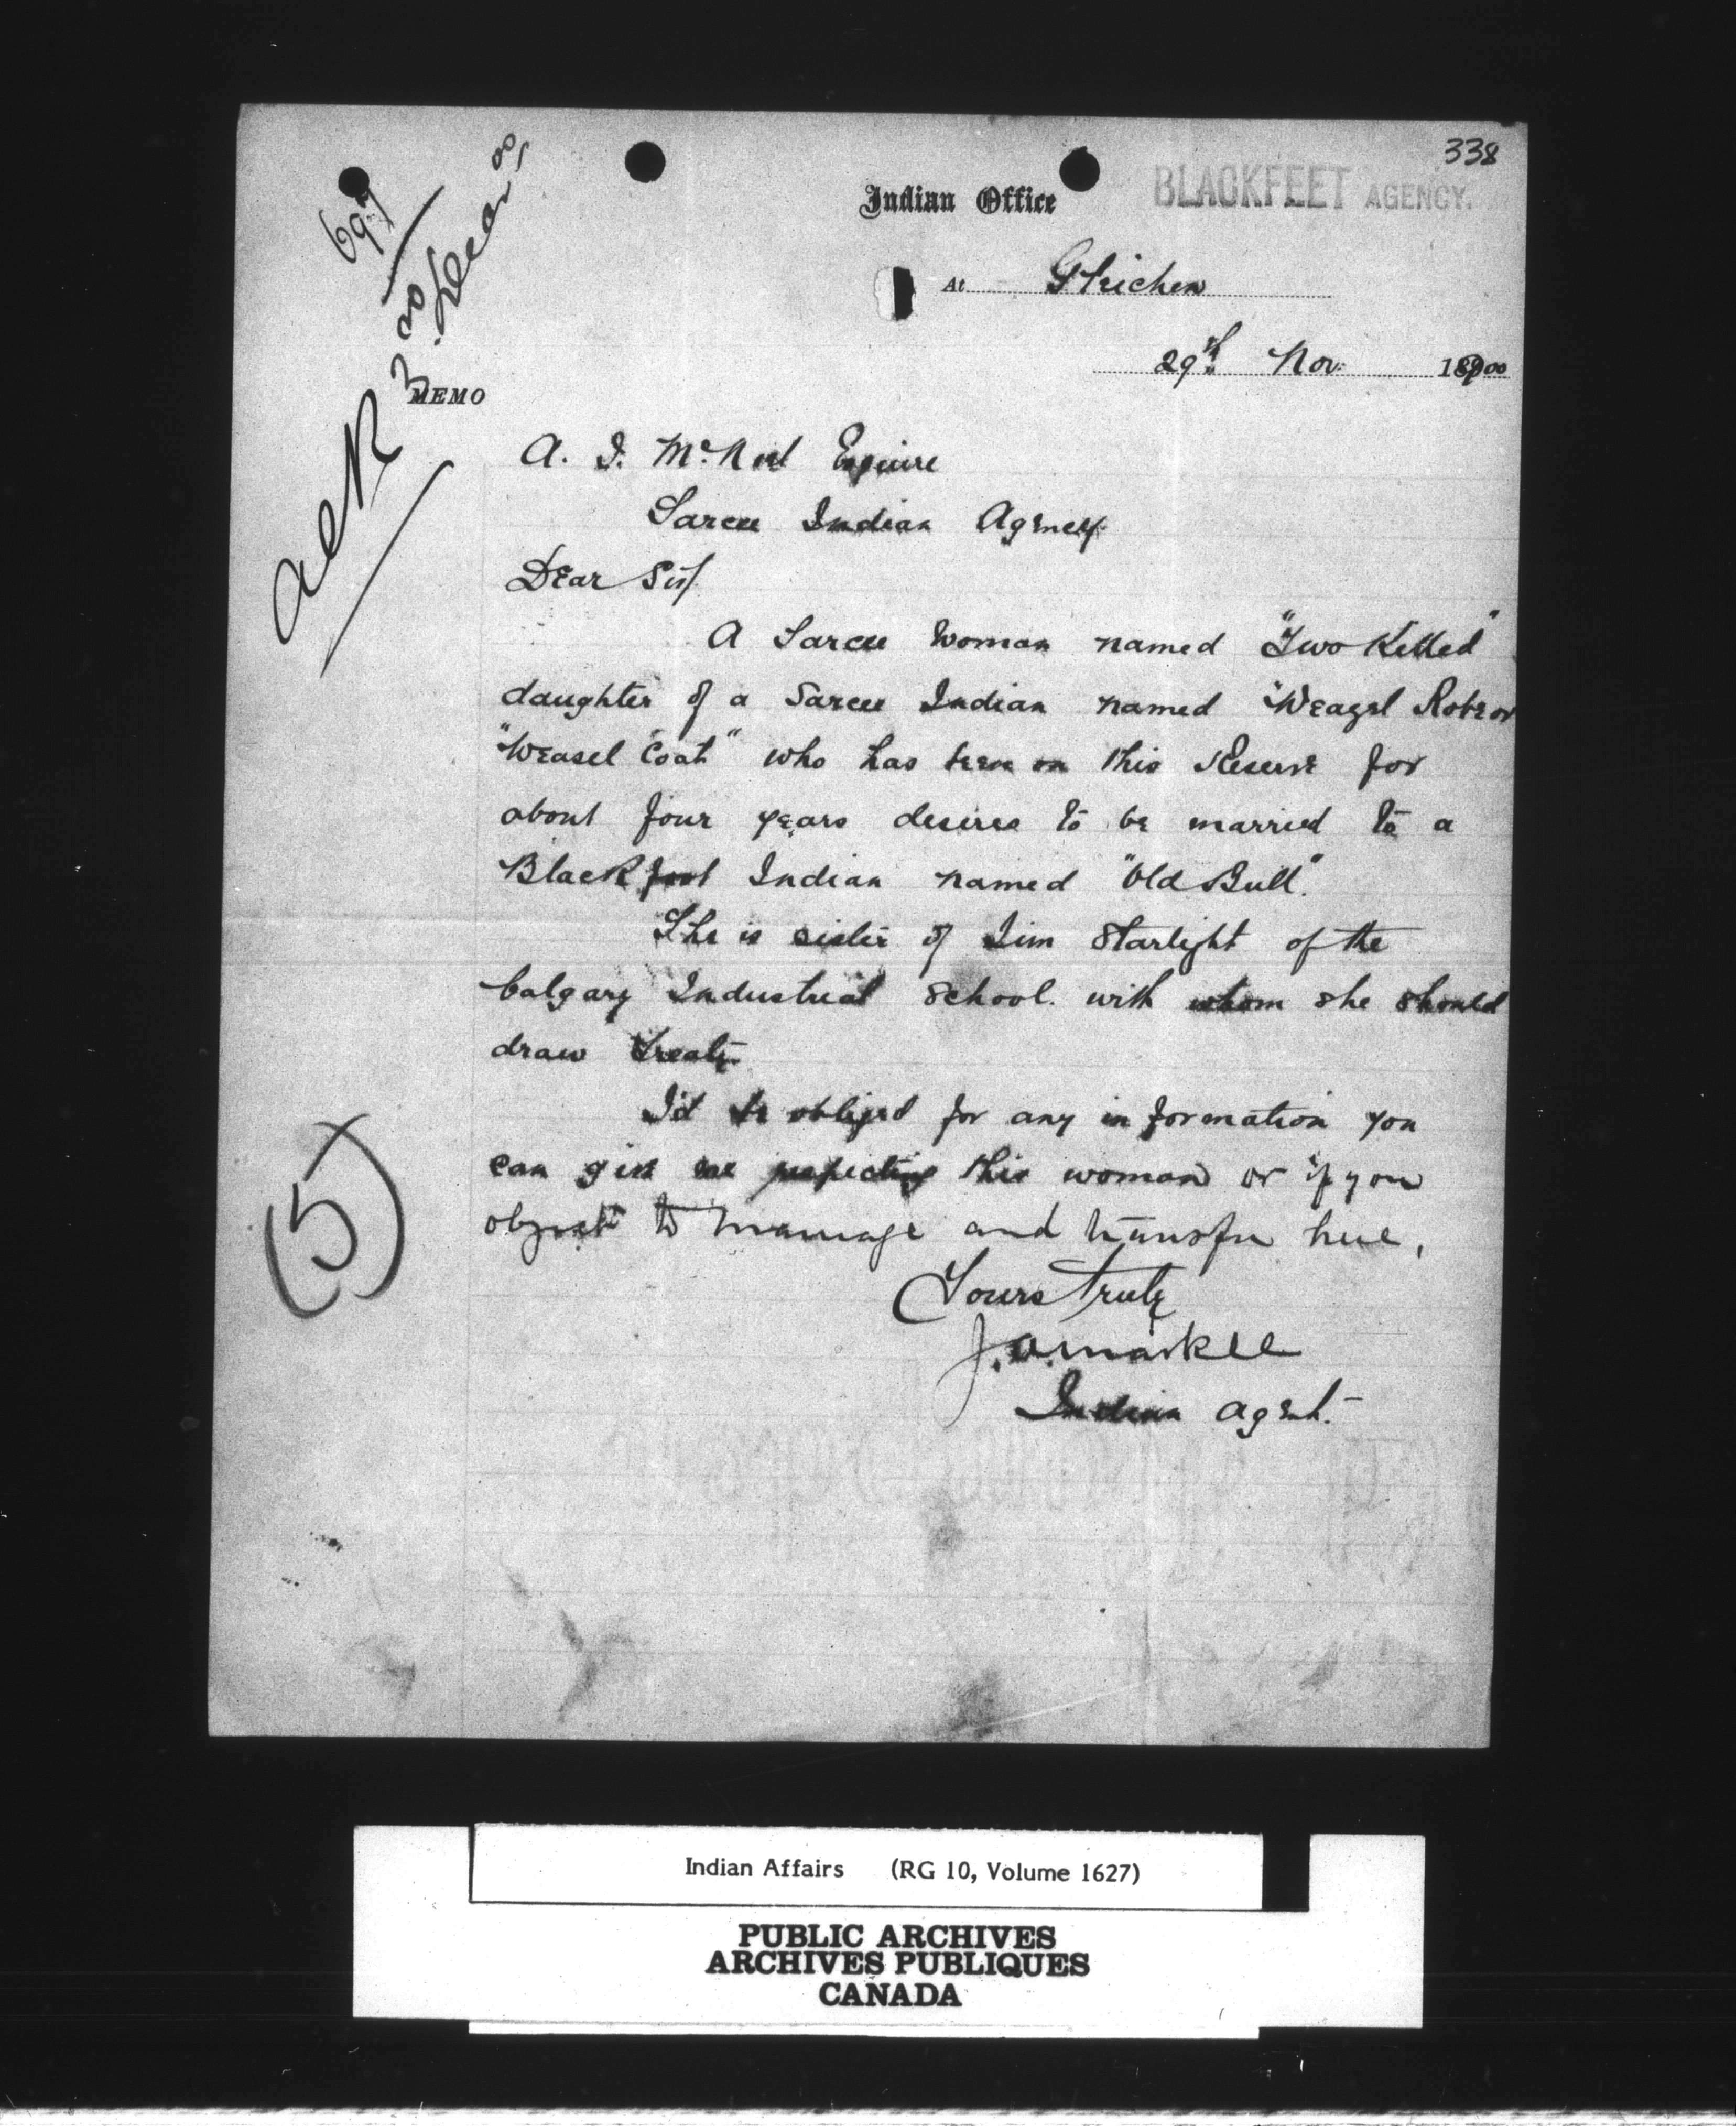 338
Indian Office BLACKFEET AGENCY.
At Gleichen
29th Nov. 1900
697
MEMO
A. J. McNeil Esquire
Sarcee Indian Agency
Dear Sir/
A Sarcee woman named "Two Killed"
daughter of a Sarcee Indian named "Weazel Robe or
"Weasel Coat" who has been on this Reserve for
about four years desires to be married to a
Blackfoot Indian named "Old Bull".
She is sister of Jim Starlight of the
Calgary Industrial School. with whom she should
draw Treaty.
I'd be obliged for any information you
can give me respecting this woman or if you
object to marriage and transfer here,
Yours truly
J. A. Markle
Indian Agent.
(5)
Indian Affairs (RG 10, Volume 1627)
PUBLIC ARCHIVES
ARCHIVES PUBLIQUES
CANADA